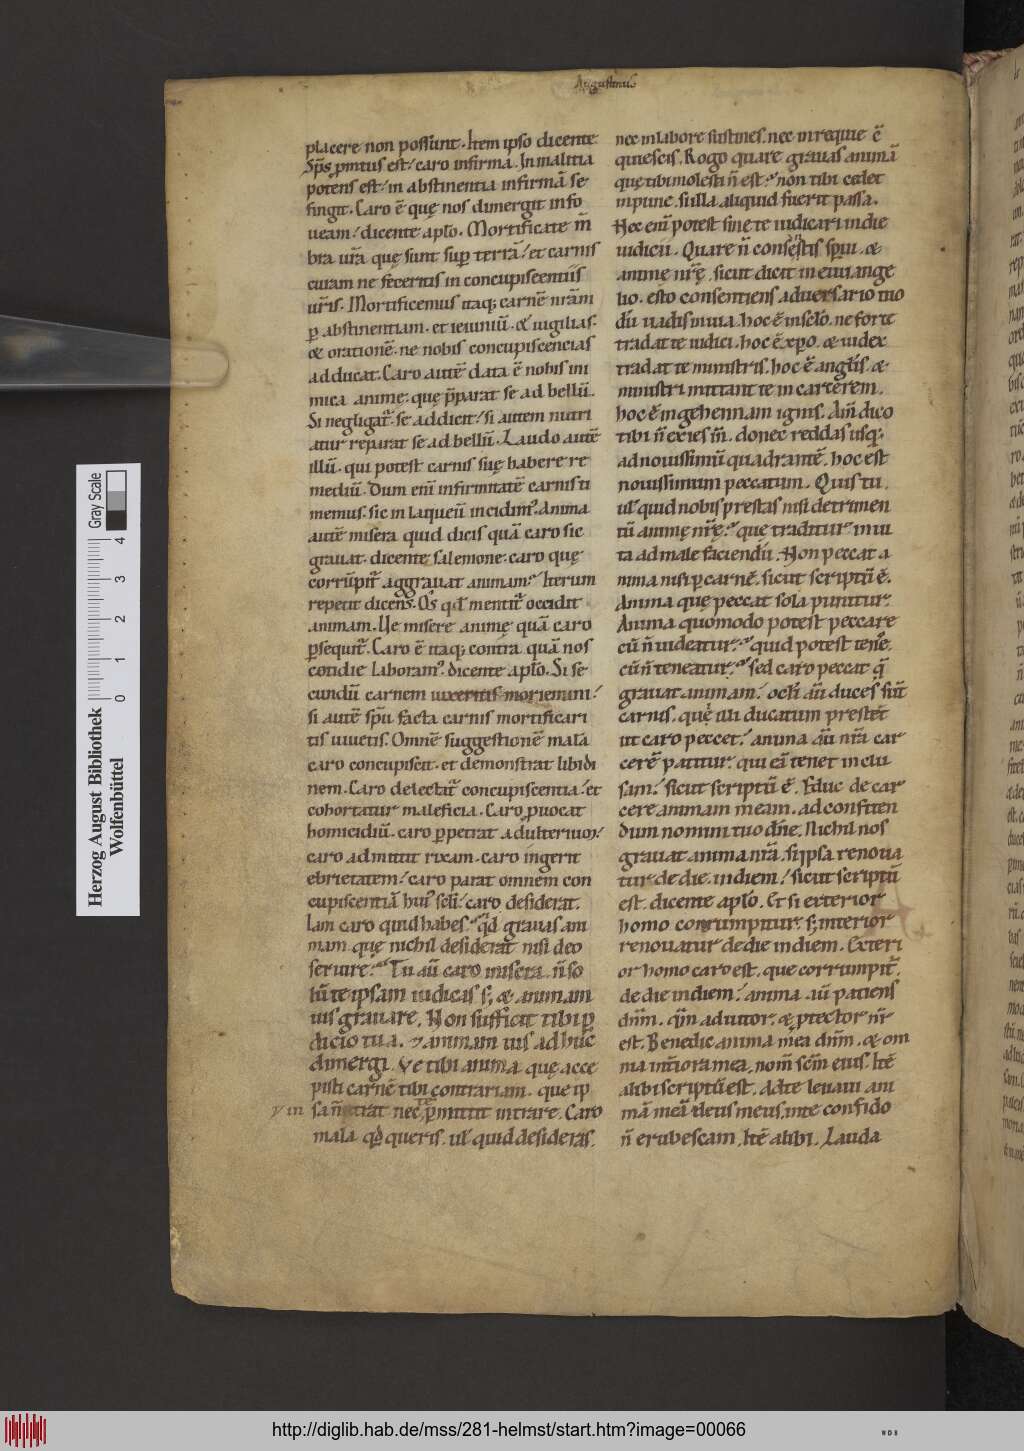 Augustinus
placere non possunt. Item ipso dicente.
Sp̄s p̄mtus est/ caro infirma. In malitia
potens est/ in abstinentia infirmā se
fingit. Caro ē quę nos dimergit in fo
ueam/ dicente apło. Mortificate m̄
bra ur̄a quę sunt sup̱ terrā/ et carnis
curam ne feceritis in concupiscentiis
ur̄is. Mortificemus itaq; carnē nr̄am
p̱ abstinentiam. et ieiuniū. & uigilias.
& orationē. ne nobis concupiscencias
adducat. Caro autē data ē nobis ini
mica animę. quę p̄parat se ad bellū.
Si negligat᷑. se addicit/ si autem nutri
atur reparat se ad bellū. Laudo autē
illū. qui potest carnis suę habere re
mediū. Dum eni infirmitatē carnis ti
memus. sic in laqueū incidim᷒. Anima
autē misera quid dicis quā caro sic
grauat. dicente salemone. caro quę
corrūpit᷑ aggrauat animam. Iterum
repetit dicens. Os qđ mentit᷑ occidit
animam. Ve misere animę quā caro
p̱sequit᷑. Caro ē itaq; contra quā nos
cotidie laboram᷒. dicente apło. Si se
cundū carnem uixeritis moriemini/
si autē sp̄u facta carnis mortificari
tis uiuetis. Omnē suggestionē mala
caro concupiscit. et demonstrat libidi
nem. Caro delectat᷑ concupiscentia/ et
cohortatur maleficia. Caro ꝓuocat
homicidiū. caro p̱petrat adulteriū/
caro admittit rixam. caro ingerit
ebrietatem/ caro parat omnem con
cupiscentiā hui᷒ scłi/ caro desiderat.
Iam caro quid habes. qd̄ grauas ani
mam quę nichil desiderat nisi deo
seruire. Tu aū caro misera. n̄ so
lū te ipsam iudicas s; & animam
uis grauare. Non sufficit tibi p̱
dicio tua. & animam uis ad huc
dimergi. Ve tibi anima quę acce
pisti carnē tibi contrariam. que ip
sa n̄ trat nec p̱mittit intrare. Caro
mala qd̄ queris. ul̄ quid desideras.
nec in labore sustines. nec in requie ē
quiescis. Rogo quare grauas animā
que tibi molesti n̄ est. non tibi cedet
inpune. si illa aliquid fuerit passa.
Nec eni potest sine te iudicari in die
iudicii. Quare n̄ consentis sp̄ui. &
animę nr̄ę. sicut dicit in euuange
lio. esto consentiens aduersario tuo
dū uadis in uia. hoc ē in scło. ne forte
tradat te iudici. hoc ē xp̄o. & iudex
tradat te ministris. hoc ē anglis. &
ministri mittant te in carcerem.
hoc ē in gehennam ignis. Am̄ dico
tibi n̄ exies in̄. donec reddas usq;
ad nouissimū quadrantē. hoc est
nouissimum peccatum. Quis tu
ul̄ quid nobis prestas nisi detrimen
tū animę nr̄ę. quę traditur in ui
ta ad male faciendū. Non peccat a
nima nisi p̱ carnē. sicut scriptū ē.
Anima quę peccat sola punitur.
Anima quomodo potest peccare
cū n̄ uideatur. quid potest tenere.
cū n̄ teneatur. sed caro peccat q̄
grauat animam/ ocłi aū duces sūt
carnis. quę illi ducatum prestet
ut caro peccet/ anima aū nr̄a car
cerē patitur. qui eā tenet inclu
sam/ sicut scriptū ē. Educ de car
cere animam meam. ad confiten
dum nomini tuo dn̄e. Nichil nos
grauat anima nr̄a. si ipsa renoua
tur de die. in diem/ sicut scriptū
est. dicente apło. Et si exterior
homo corrumpitur. s; interior
renouatur de die in diem. Exteri
or homo caro est. que corrumpit᷑.
de die in diem/ anima aū patiens
dn̄m. qm̄ adiutor. & ꝓtector nr̄
est. Benedic anima mea dn̄m. & om
nia int̄iora mea. nom̄ scm̄ eius. Itē
alibi scriptū est. Ad te leuaui ani
mā meā deus meus. in te confido
n̄ erubescam. Itē alibi. Lauda
Herzog August Bibliothek
Wolfenbüttel
0 1 2 3 4
Gray Scale
http://diglib.hab.de/mss/281-helmst/start.htm?image=00066